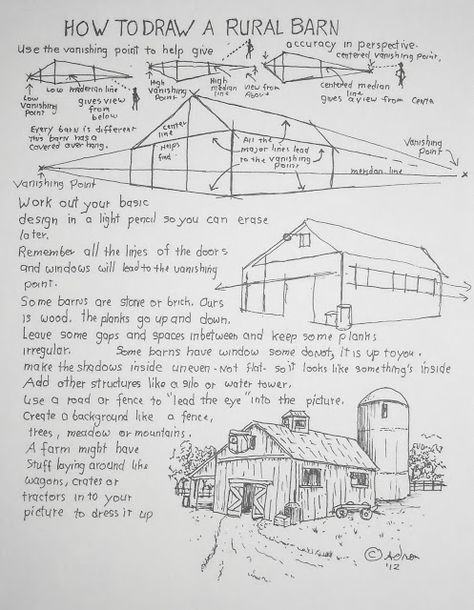 HOW TO DRAW A RURAL BARN
Use the vanishing point to help give
accuracy in perspective.
centered vanishing point.
Low mederian line
Low
Vanishing
Point
gives view
from
below
High
median
line
High
Vanishing
Point
view from
Above
centered median
line
gives a view from Centa
Every barn is different
this barn has a
covered over hang.
center
line
Helps
find
All the
major lines lead
to the vanishing
point.
Vanishing
Point
median line
Vanishing Point
Work out your basic
design in a light pencil so you can erase
later.
Remember all the lines of the doors
and windows will lead to the vanishing
point.
Some barns are stone or brick. Ours
is wood. the planks go up and down.
Leave some gaps and spaces inbetween and keep some planks
irregular. Some barns have window some donot, it is up to you.
make the shadows inside uneven - Not flat- so it looks like something's inside
Add other structures like a silo or water tower.
Use a road or fence to "lead the eye" into the picture.
Create a background like a fence,
trees, meadow or mountains.
A farm might have
Stuff laying around like
wagons, crates or
tractors in to your
picture to dress it up
© Adron
'12